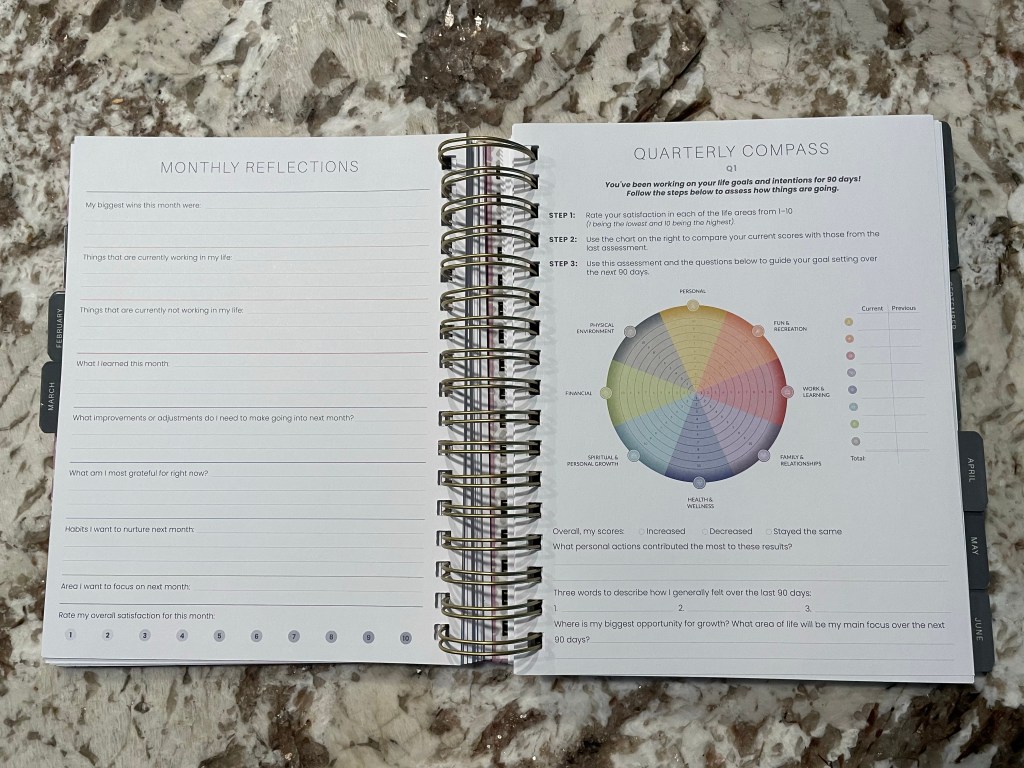 MONTHLY REFLECTIONS
My biggest wins this month were:
Things that are currently working in my life:
Things that are currently not working in my life:
What I learned this month:
What improvements or adjustments do I need to make going into next month?
What am I most grateful for right now?
Habits I want to nurture next month:
Area I want to focus on next month:
Rate my overall satisfaction for this month:
1 2 3 4 5 6 7 8 9 10
FEBRUARY
MARCH
QUARTERLY COMPASS
Q1
You've been working on your life goals and intentions for 90 days!
Follow the steps below to assess how things are going.
STEP 1: Rate your satisfaction in each of the life areas from 1-10
(1 being the lowest and 10 being the highest).
STEP 2: Use the chart on the right to compare your current scores with those from the
last assessment.
STEP 3: Use this assessment and the questions below to guide your goal setting over
the next 90 days.
PERSONAL
FUN &
RECREATION
WORK &
LEARNING
FAMILY &
RELATIONSHIPS
HEALTH &
WELLNESS
SPIRITUAL &
PERSONAL GROWTH
FINANCIAL
PHYSICAL
ENVIRONMENT
Current Previous
Total:
Overall, my scores: Increased Decreased Stayed the same
What personal actions contributed the most to these results?
Three words to describe how I generally felt over the last 90 days:
1. 2. 3.
Where is my biggest opportunity for growth? What area of life will be my main focus over the next
90 days?
SEPTEMBER
APRIL
MAY
JUNE